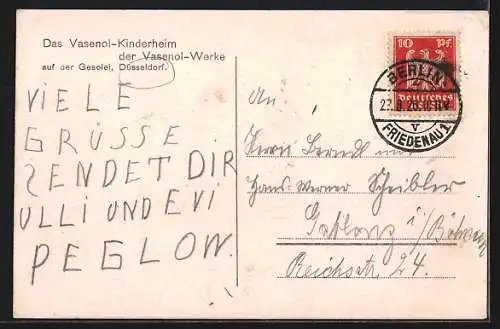 Das Vasenol-Kinderheim
der Vasenol-Werke
auf der Gesolei, Düsseldorf.
VIELE
GRÜSSE
SENDET DIR
ULLI UND EVI
PEGLOW.
10 Pf.
Deutsches
BERLIN-
FRIEDENAU 1
An
Herrn Berndl und
Hans-Werner Scheibler
Gablonz i/Böhmen
Reichsstr. 24.